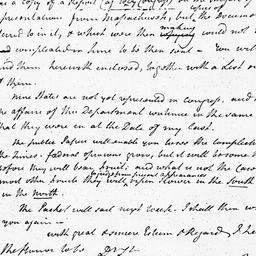 as a copy of a Report of
presentation from Massachusetts, but the Documents
referred to in it, & which were then making would not be
completed in time to be then sent — You will
find them herewith enclosed, together with a List of
them.
Nine States are not yet represented in congress, and
the affairs of this Department continue in the same
that they were in at the Date of my last.
The public Papers will enable you to see the complection of
the Times. federal opinions grow, but it will be some time
before they will bear fruit; and what is not the case
most other fruits they will ripen slower in the South
in the North.
The Packet will sail next week. I shall then write
you again —
with great & sincere Esteem & Regard, I